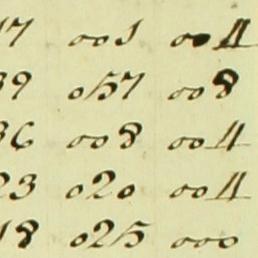 17 001 004
39 057 008
36 008 004
23 020 004
18 025 000